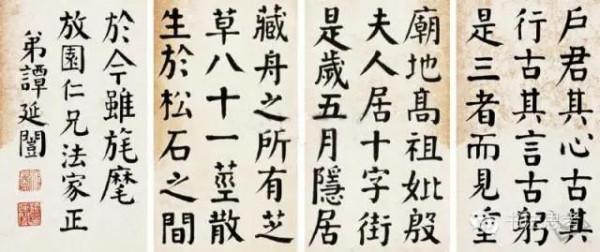 戶君其心古其
行古其言古躬
是三者而見重
廟地高祖妣殷
夫人居十字街
是歲五月隱居
藏舟之所有芝
草八十一莖散
生於松石之間
於今雖旄麾
放園仁兄法家正
弟譚延闓